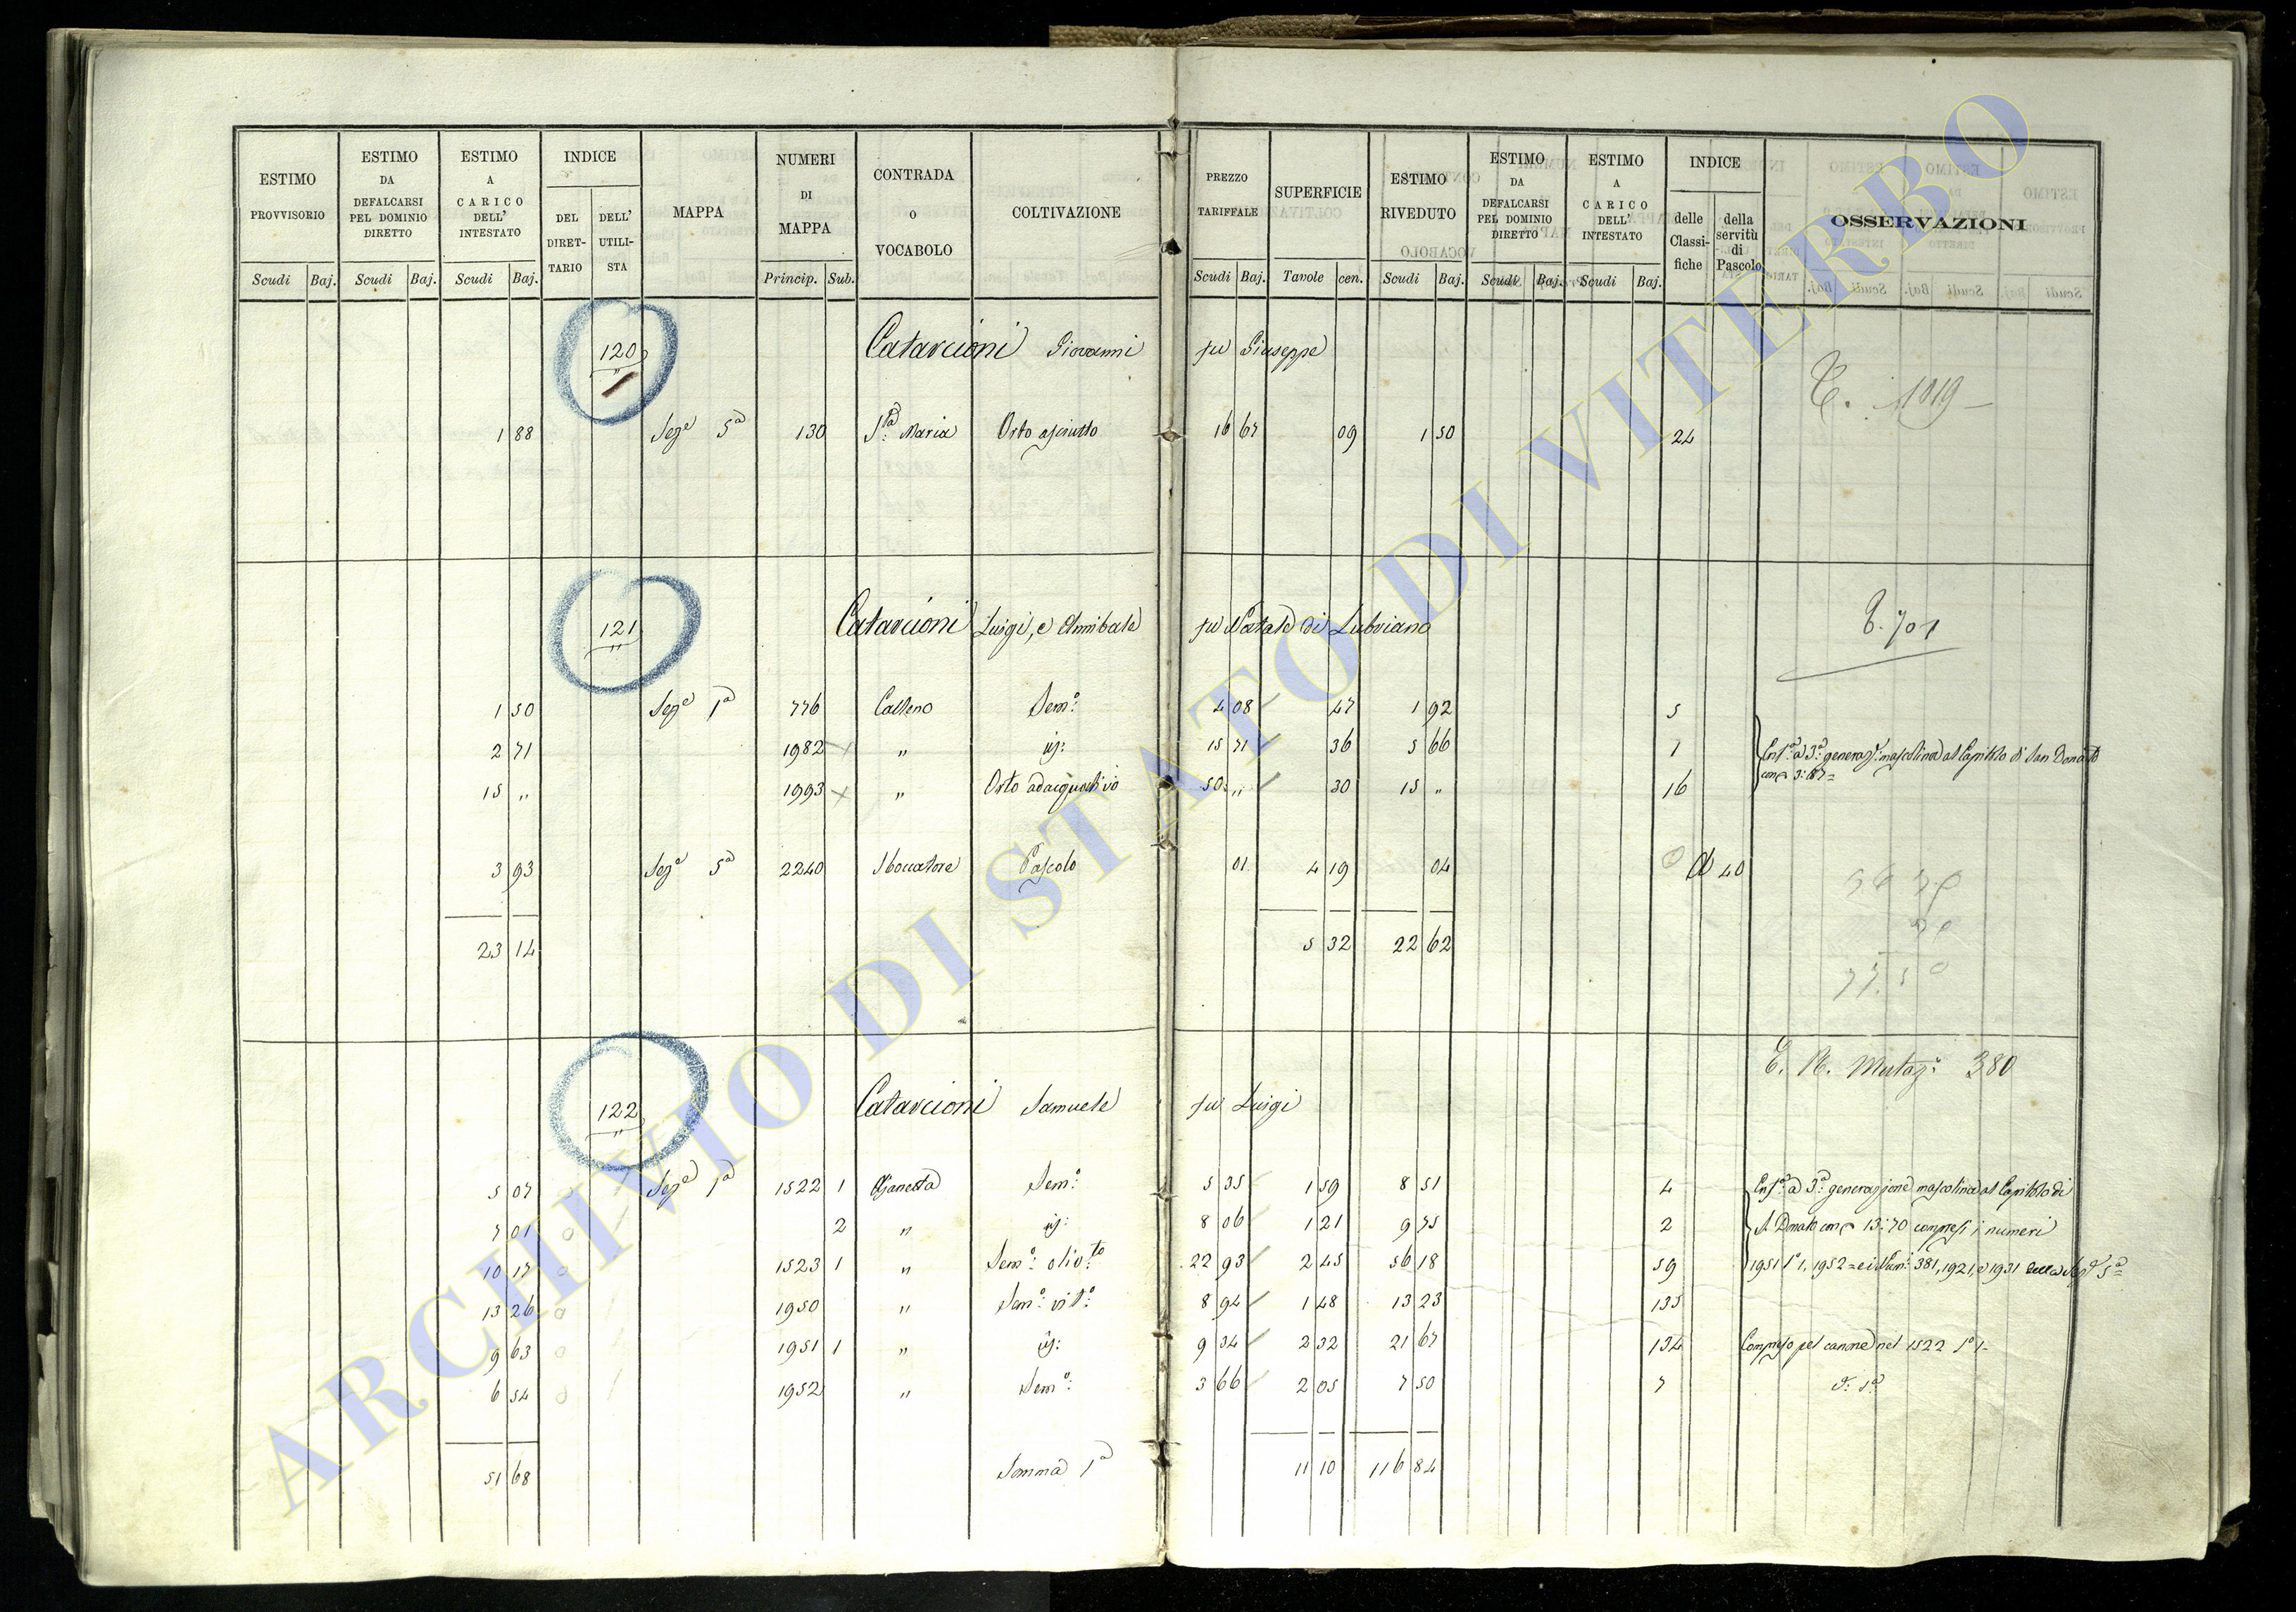 ESTIMO PROVVISORIO | ESTIMO DA DEFALCARSI PEL DOMINIO DIRETTO | ESTIMO A CARICO DELL' INTESTATO | INDICE | MAPPA | NUMERI DI MAPPA | CONTRADA O VOCABOLO | COLTIVAZIONE | PREZZO TARIFFALE | SUPERFICIE | ESTIMO RIVEDUTO | ESTIMO DA DEFALCARSI PEL DOMINIO DIRETTO | ESTIMO A CARICO DELL' INTESTATO | INDICE | OSSERVAZIONI
DEL DIRET-TARIO | DELL' UTILI-STA | delle Classi-fiche | della servitù di Pascolo
Scudi Baj. | Scudi Baj. | Scudi Baj. | Princip. Sub. | Scudi Baj. | Tavole cen. | Scudi Baj. | Scudi Baj. | Scudi Baj.
120 Catarcioni Giovanni fu Giuseppe
1019
1 88 Sez.e 5a 130 S.ta Maria Orto asciutto 16 67 09 1 50 24
121 Catarcioni Luigi, e Annibale fu Natale di Lubriano
701
1 50 Sez.e 1a 776 Calleno Sem.o 4 08 47 1 92 5
2 71 1982 " id: 15 71 36 5 66 7
Enf.a a 3a generaz.e mascolina al Capitolo di San Donato
15 " 1993 " Orto adacquativo 50 " 30 15 " 16
3 93 Sez.e 5a 2240 Sboccatore Pascolo 01 4 19 04 A 40
23 14 5 32 22 62
E. R. Mutaz: 380
122 Catarcioni Samuele fu Luigi
5 07 Sez.e 1a 1522 1 Ganesta Sem.o 5 35 1 59 8 51 4 Enf.a a 3a generazione mascolina al Capitolo di
7 01 2 " id: 8 06 1 21 9 75 2 S. Donato con 13:70 compresi i numeri
10 17 1523 1 " Sem.o olio.to 22 93 2 45 56 18 59 1951 S.o 1, 1952 = e i Num: 381, 1921, e 1931 della Sez.e 5a
13 26 1950 " Sem.o vit.o 8 94 1 48 13 23 135
9 63 1951 1 " id: 9 34 2 32 21 67 134 Compreso pel canone nel 1522 S.o 1
6 54 1952 " Sem.o 3 66 2 05 7 50 7
51 68 Somma 1a 11 10 116 84
ARCHIVIO DI STATO DI VITERBO